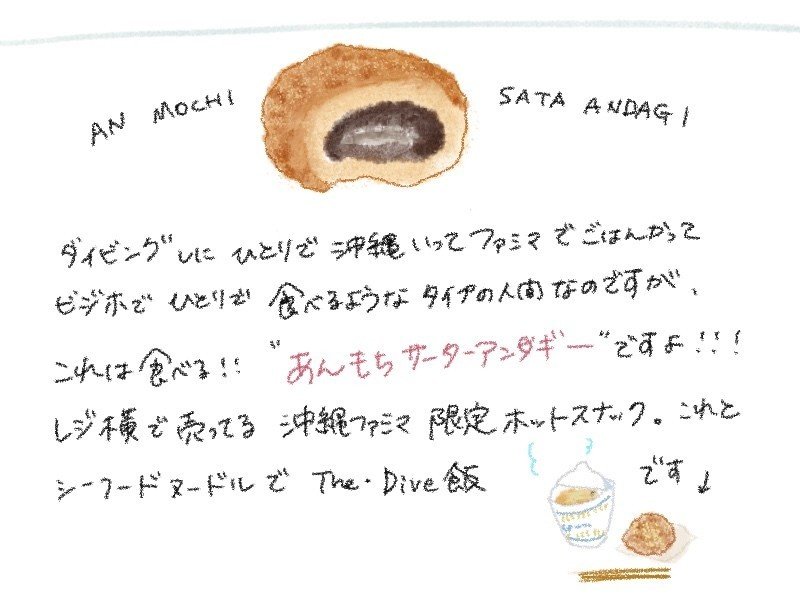 AN MOCHI SATA ANDAGI
ダイビングしに ひとりで 沖縄いってファミマでごはんかって
ビジホで ひとりで 食べるような タイプの人間なのですが、
これは食べる!! "あんもちサーターアンダギー"ですよ!!!
レジ横で売ってる 沖縄ファミマ 限定ホットスナック。これと
シーフードヌードルで The・Dive飯 です↓